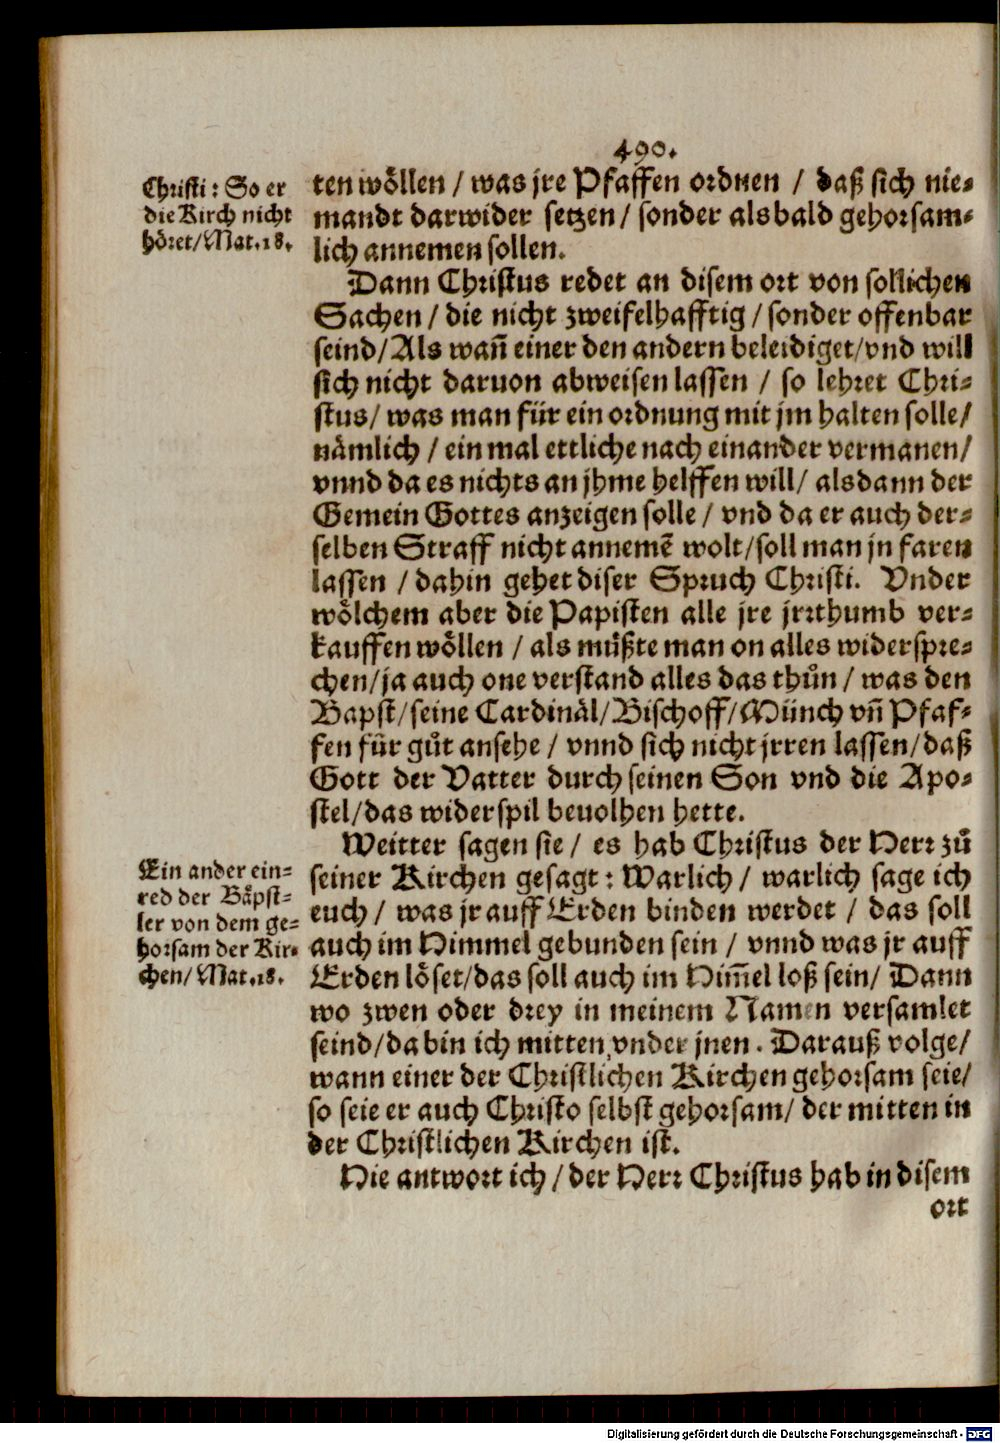 490.
Christi: So er
die Kirch nicht
höret/Mat.18.
ten wöllen / was jre Pfaffen ordnen / daß sich nie-
mandt darwider setzen/ sonder alsbald gehorsam-
lich annemen sollen.
Dann Christus redet an disem ort von sollichen
Sachen/ die nicht zweifelhafftig/ sonder offenbar
seind/Als wañ einer den andern beleidiget/vnd will
sich nicht daruon abweisen lassen / so lehret Chri-
stus/ was man für ein ordnung mit jm halten solle/
nämlich / ein mal ettliche nach einander vermanen/
vnnd da es nichts an jhme helffen will/ alsdann der
Gemein Gottes anzeigen solle / vnd da er auch der-
selben Straff nicht annemẽ wolt/soll man jn faren
lassen / dahin gehet diser Spruch Christi. Vnder
wölchem aber die Papisten alle jre jrrthumb ver-
kauffen wöllen / als müßte man on alles widerspre-
chen/ja auch one verstand alles das thůn / was den
Bapst/seine Cardinäl/Bischoff/Münch vñ Pfaf-
fen für gůt ansehe / vnnd sich nicht jrren lassen/daß
Gott der Vatter durch seinen Son vnd die Apo-
stel/das widerspil beuolhen hette.
Ein ander ein-
red der Bäpst-
ler von dem ge-
horsam der Kir-
chen/Mat.18.
Weitter sagen sie/ es hab Christus der Herr zů
seiner Kirchen gesagt: Warlich/ warlich sage ich
euch/ was jr auff Erden binden werdet / das soll
auch im Himmel gebunden sein / vnnd was jr auff
Erden löset/das soll auch im Him̃el loß sein/ Dann
wo zwen oder drey in meinem Namen versamlet
seind/da bin ich mitten vnder jnen. Darauß volge/
wann einer der Christlichen Kirchen gehorsam seie/
so seie er auch Christo selbst gehorsam/ der mitten in
der Christlichen Kirchen ist.
Hie antwort ich/der Herr Christus hab in disem
ort
Digitalisierung gefördert durch die Deutsche Forschungsgemeinschaft - DFG